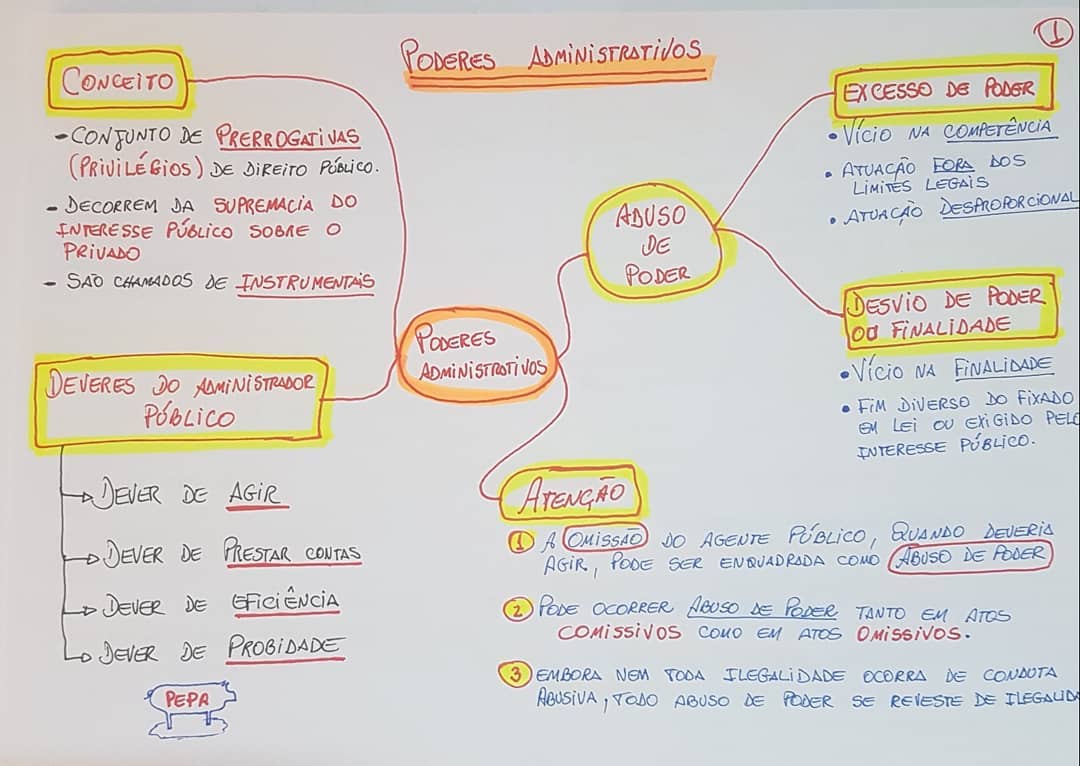 PODERES ADMINISTRATIVOS
1
CONCEITO
- CONJUNTO DE PRERROGATIVAS
(PRIVILÉGIOS) DE DIREITO PÚBLICO.
- DECORREM DA SUPREMACIA DO
INTERESSE PÚBLICO SOBRE O
PRIVADO
- SÃO CHAMADOS DE INSTRUMENTAIS
PODERES
ADMINISTRATIVOS
DEVERES DO ADMINISTRADOR
PÚBLICO
DEVER DE AGIR
DEVER DE PRESTAR CONTAS
DEVER DE EFICIÊNCIA
DEVER DE PROBIDADE
PEPA
ABUSO
DE
PODER
EXCESSO DE PODER
• VÍCIO NA COMPETÊNCIA
• ATUAÇÃO FORA DOS
LIMITES LEGAIS
• ATUAÇÃO DESPROPORCIONAL
DESVIO DE PODER
OU FINALIDADE
• VÍCIO NA FINALIDADE
• FIM DIVERSO DO FIXADO
EM LEI OU EXIGIDO PELO
INTERESSE PÚBLICO.
ATENÇÃO
1 A OMISSÃO DO AGENTE PÚBLICO, QUANDO DEVERIA
AGIR, PODE SER ENQUADRADA COMO ABUSO DE PODER
2 PODE OCORRER ABUSO DE PODER TANTO EM ATOS
COMISSIVOS COMO EM ATOS OMISSIVOS.
3 EMBORA NEM TODA ILEGALIDADE OCORRA DE CONDUTA
ABUSIVA, TODO ABUSO DE PODER SE REVESTE DE ILEGALID